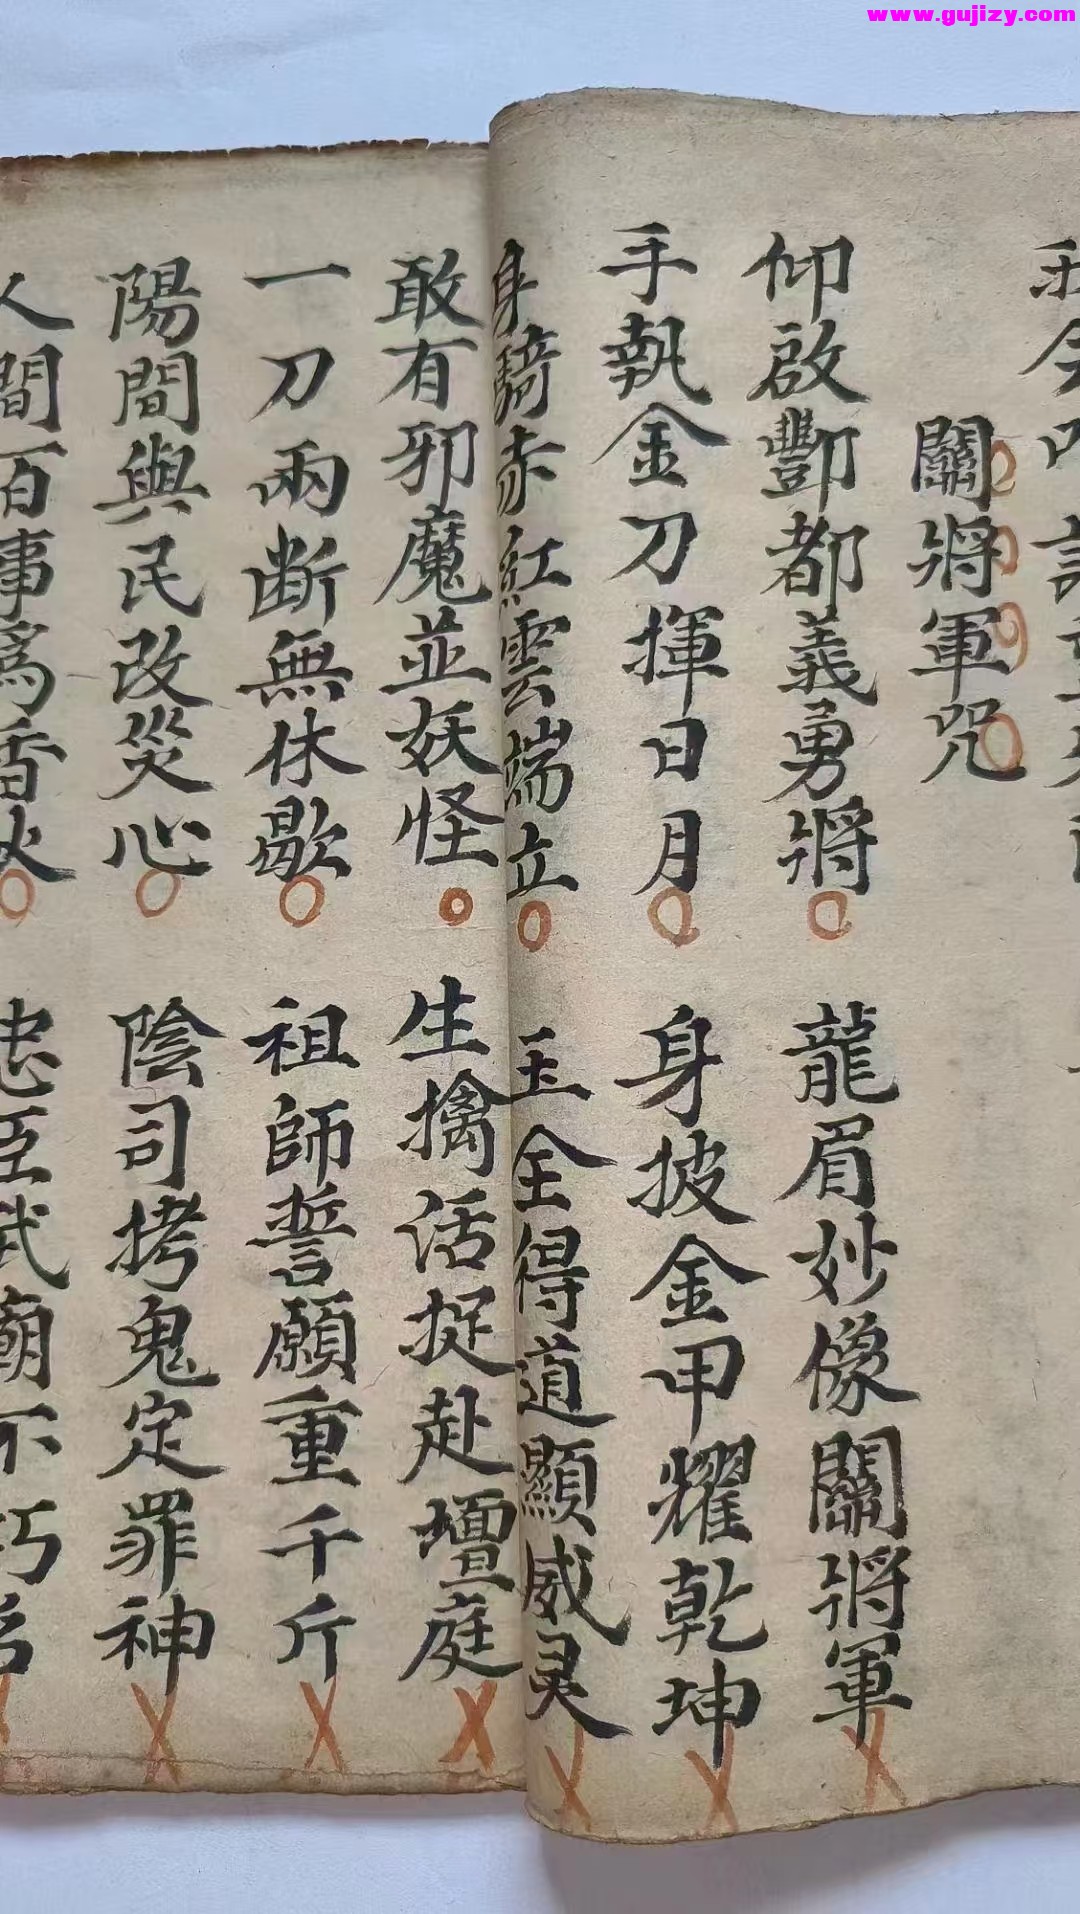 www.gujizy.com
關將軍咒
仰啟酆都義勇將 龍眉妙像關將軍
手執金刀揮日月 身披金甲耀乾坤
身騎赤紅雲端立 玉全得道顯威灵
敢有邪魔並妖怪 生擒活捉赴壇庭
一刀兩断無休歇 祖師誓願重千斤
陽間與民改災心 陰司拷鬼定罪神
人間百事為香火 忠臣武廟不朽名